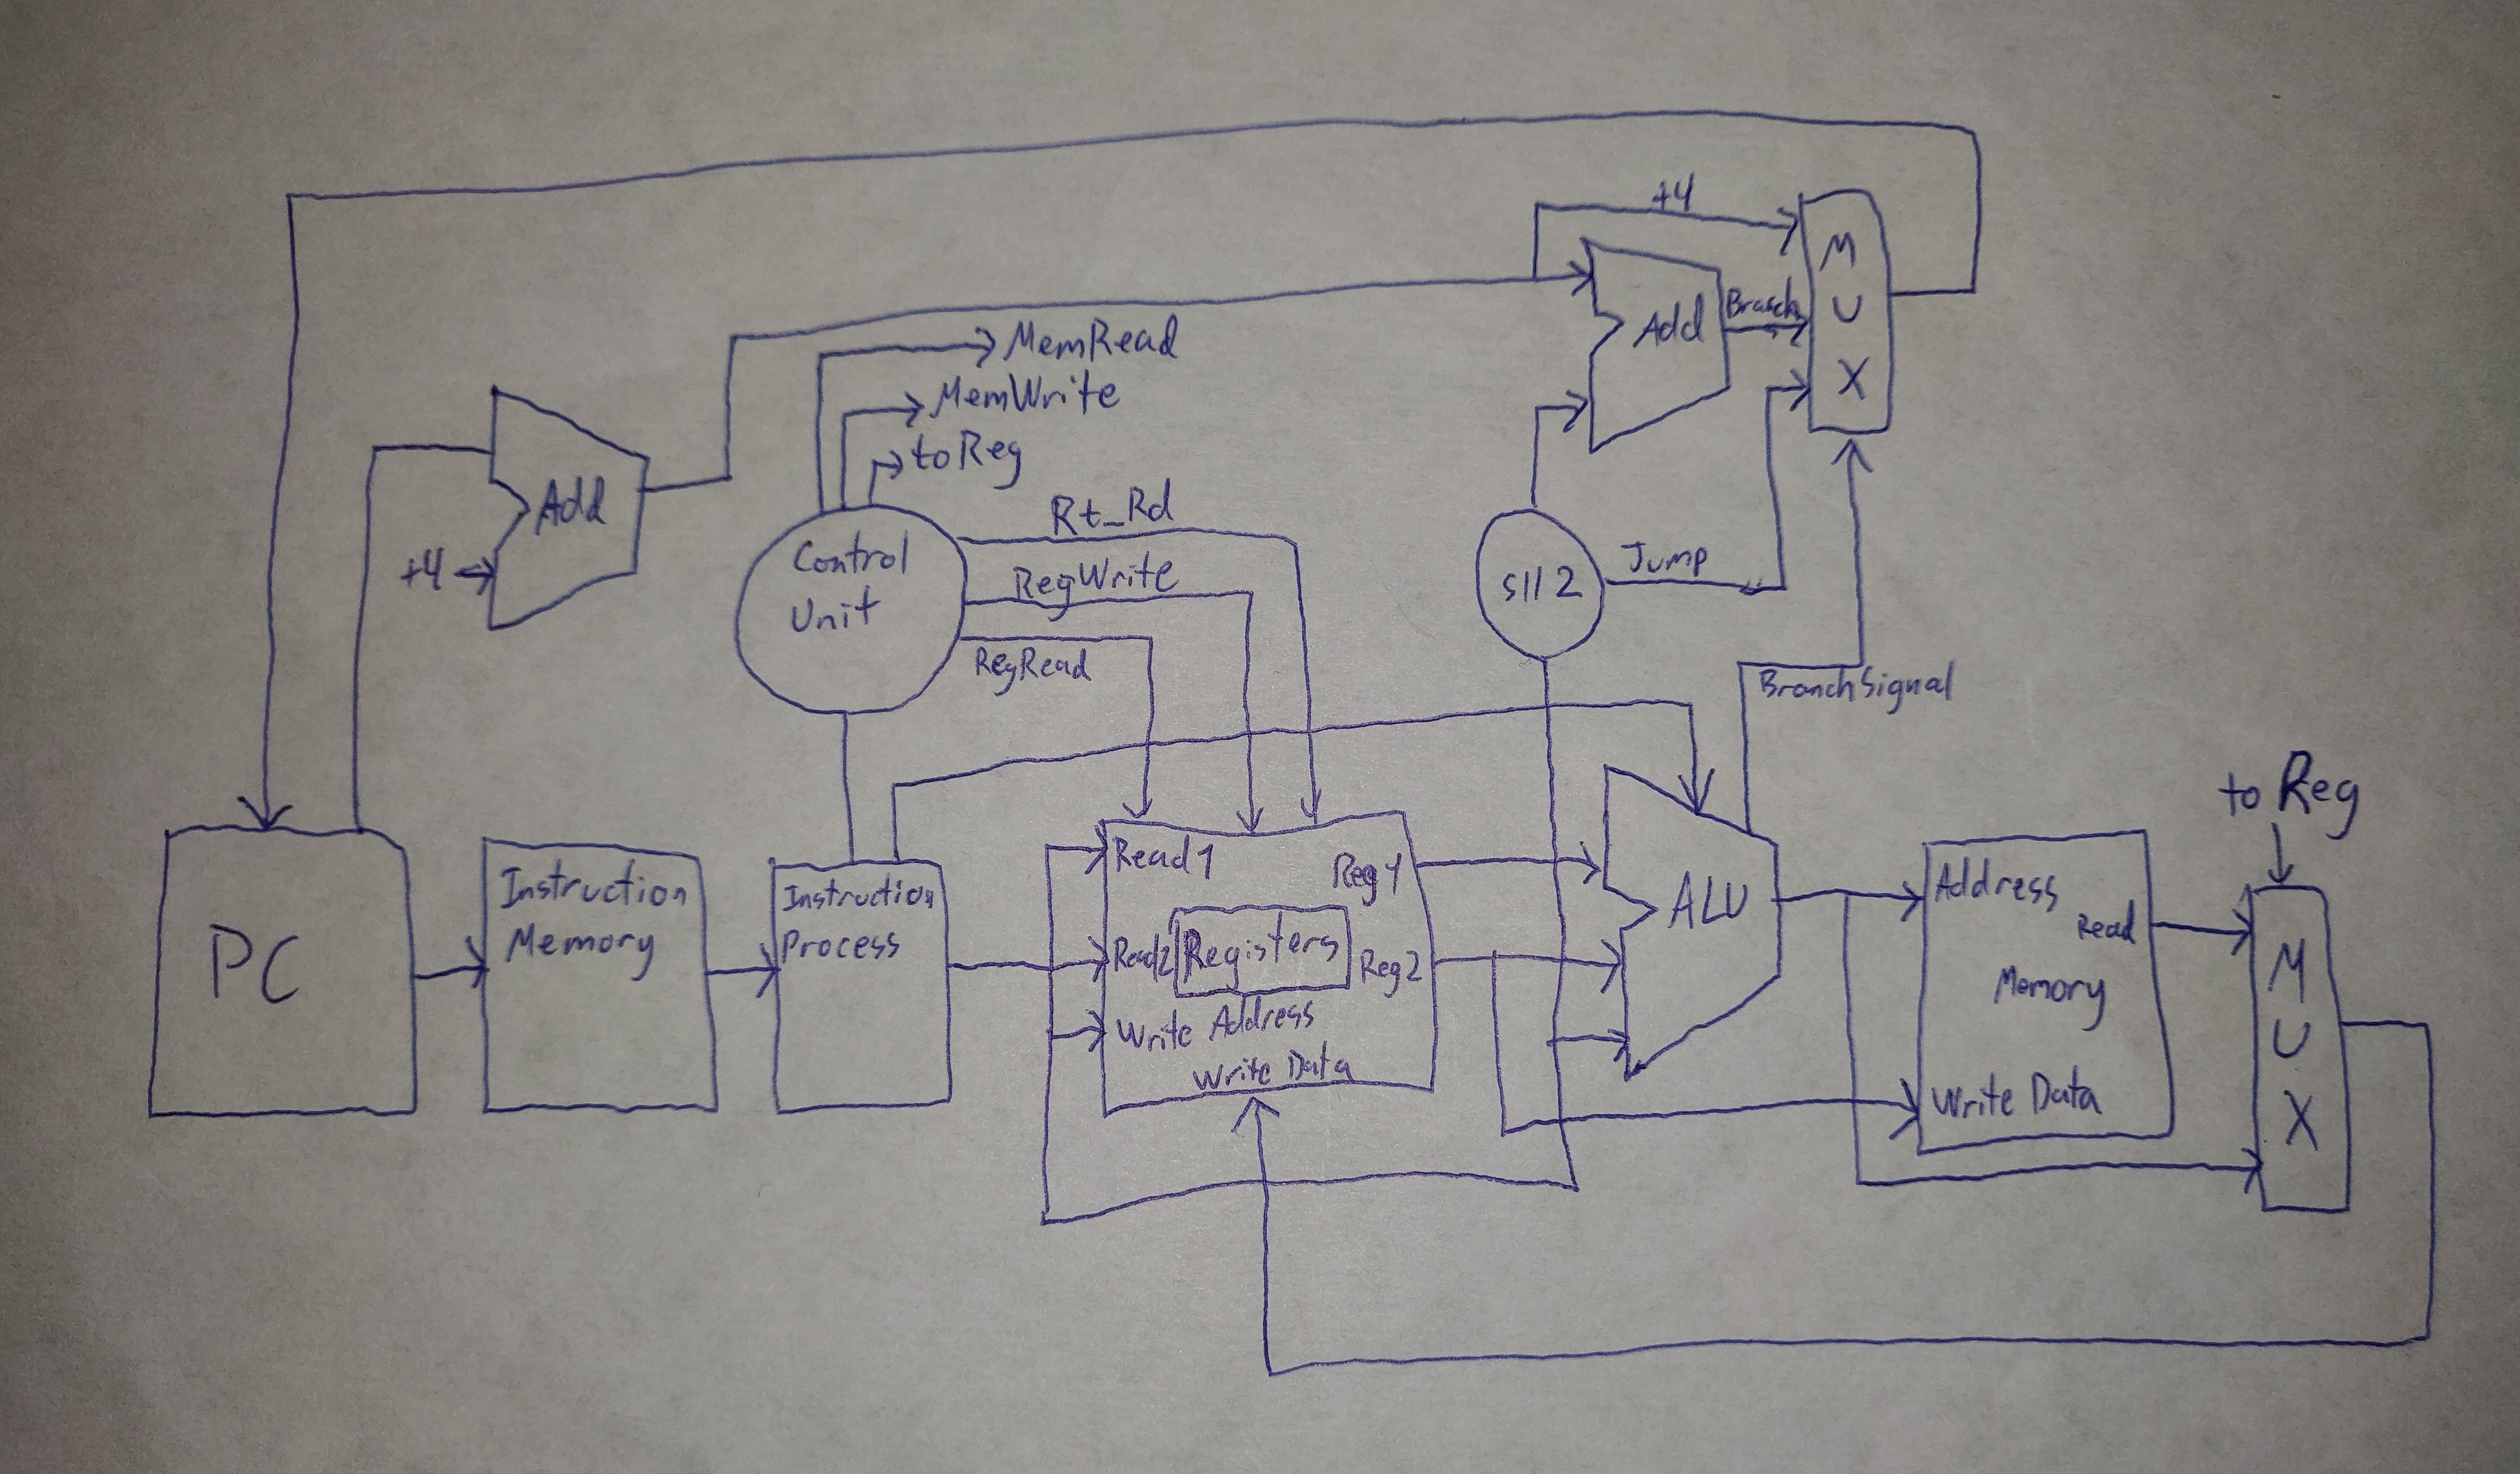 +4
Add
Branch
M
U
X
MemRead
MemWrite
to Reg
Add
+4
Rt_Rd
Control
Unit
RegWrite
RegRead
sll 2
Jump
BranchSignal
to Reg
PC
Instruction
Memory
Instruction
Process
Read1
Reg1
Read2
Registers
Reg2
Write Address
Write Data
ALU
Address
Read
Memory
Write Data
M
U
X